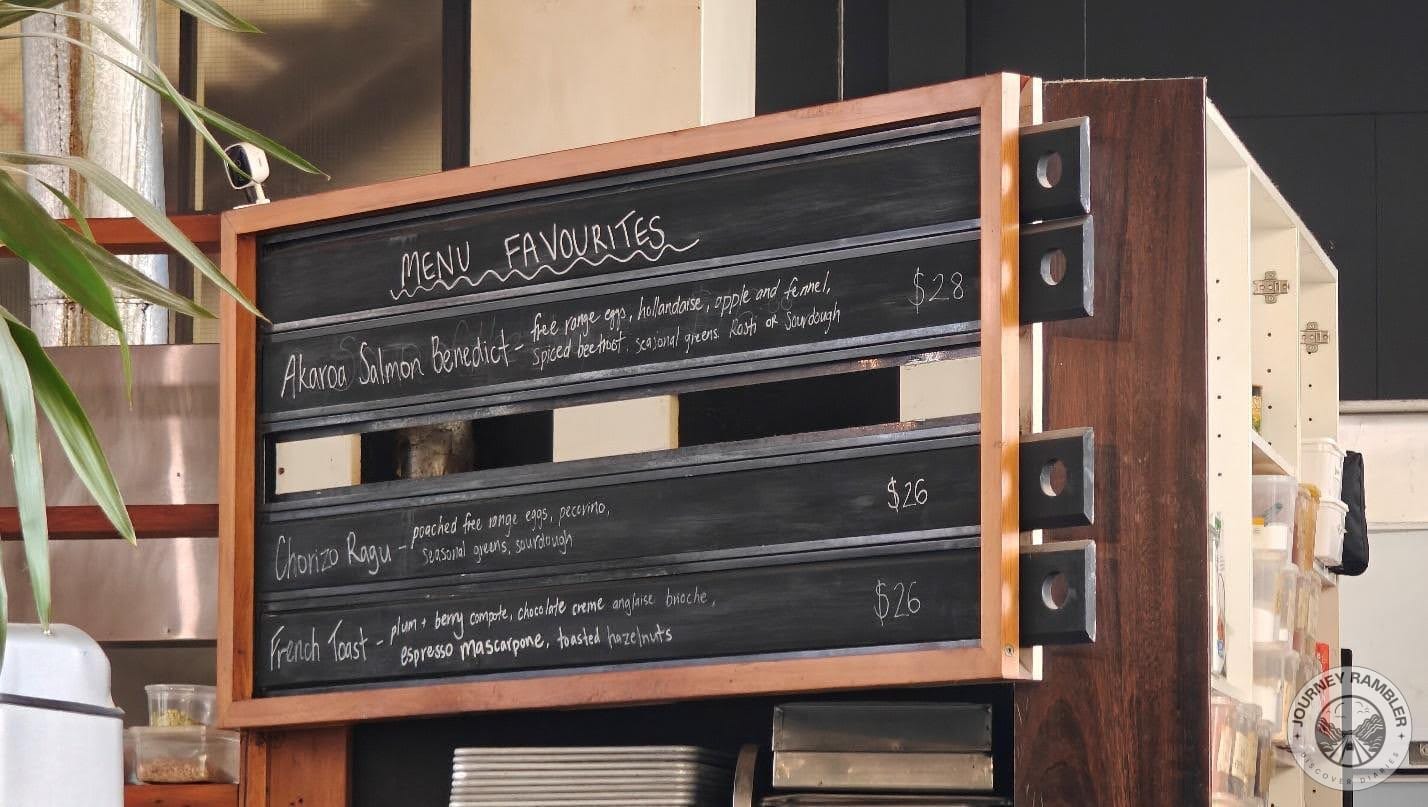 MENU FAVOURITES
Akaroa Salmon Benedict - free range eggs, hollandaise, apple and fennel, $28
spiced beetroot. seasonal greens. Rosti or Sourdough
Chorizo Ragu - poached free range eggs, pecorino, $26
seasonal greens, sourdough
French Toast - plum + berry compote, chocolate creme anglaise brioche, $26
espresso mascarpone, toasted hazelnuts
JOURNEY RAMBLER
DISCOVER DIARIES